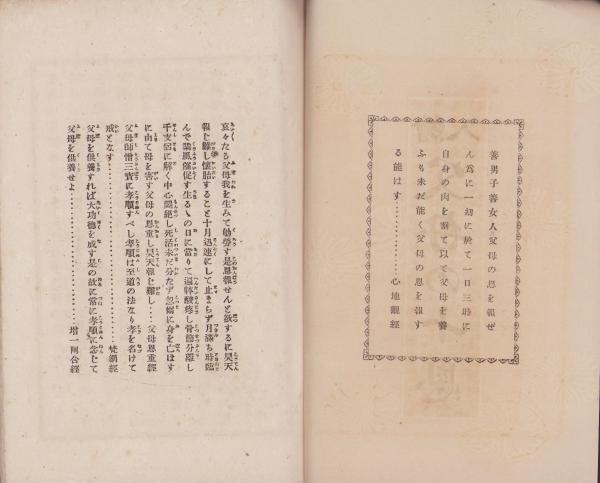 善男子善女人父母の恩を報ぜ
ん爲に一切に於て一日三時に
自身の肉を割て以て父母を養
ふも未だ能く父母の恩を報す
る能はす…………心地觀經
哀々たる父母我を生みて劬勞す是恩報せんと欲するに昊天
報じ難し懷胎すること十月迅速にして止まらず月滿ち時臨
んで業風催促す生るゝの日に當りて遍體酸疼し骨節分離し
千支倶に解く中心悶絕し死活未だ分たず忽爾に身を亡ほす
に由て母を害す父母の恩重し昊天報じ難し…父母恩重經
父母師僧三寶に孝順すべし孝順は至道の法なり孝を名けて
戒となす…………………梵網經
父母を供養すれば大功德を成す是の故に常に孝順に念じて
父母を供養せよ…………………增一阿含經